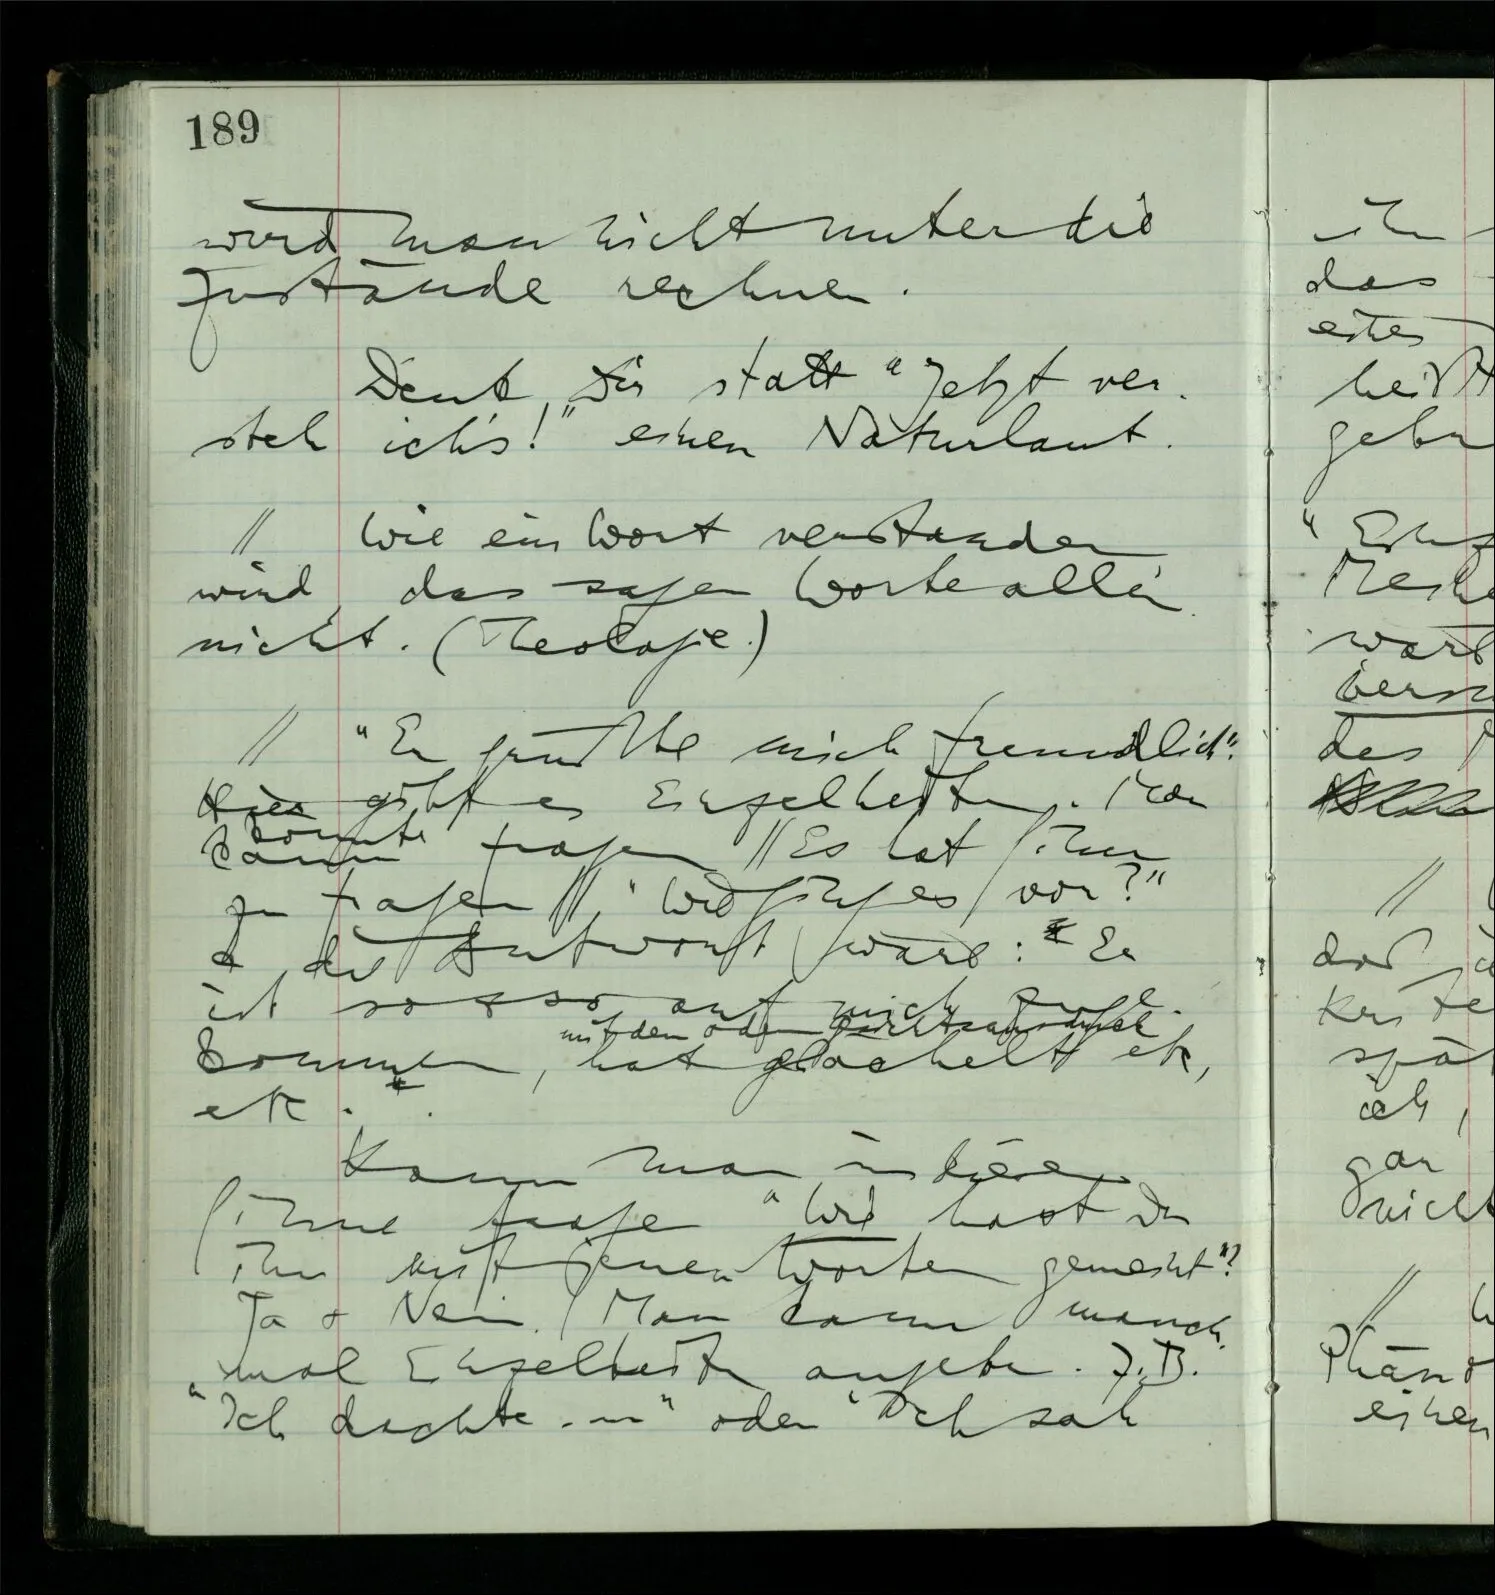 189
wird man nicht unter die
Zustände rechnen.
Denk Dir statt "Jetzt ver-
steh ich's!" einen Naturlaut.
// Wie ein Wort verstanden
wird, das sagen Worte allein
nicht. (Theologie.)
// "Er grüßte mich freundlich".
Hier gibt es Einzelheiten. Man
könnte
kann fragen // Es hat Sinn
zu fragen //, "Wie ging es vor?"
& die Antwort wäre: Er
ist so & so auf mich zuge-
mit dem oder Gesichtsausdruck
kommen, hat gelächelt etc,
etc.
Kann man in diesem
Sinne fragen "Wie hast Du
ihn mit jenen Worten gemeint"?
Ja & Nein. Man kann manch-
mal Einzelheiten angeben. Z.B.
"Ich dachte an" oder "Ich sah
ihn
das
eines
heißt
gebr
"
wäre
des
//
daß
spät
ich,
gar
nicht
//
einen